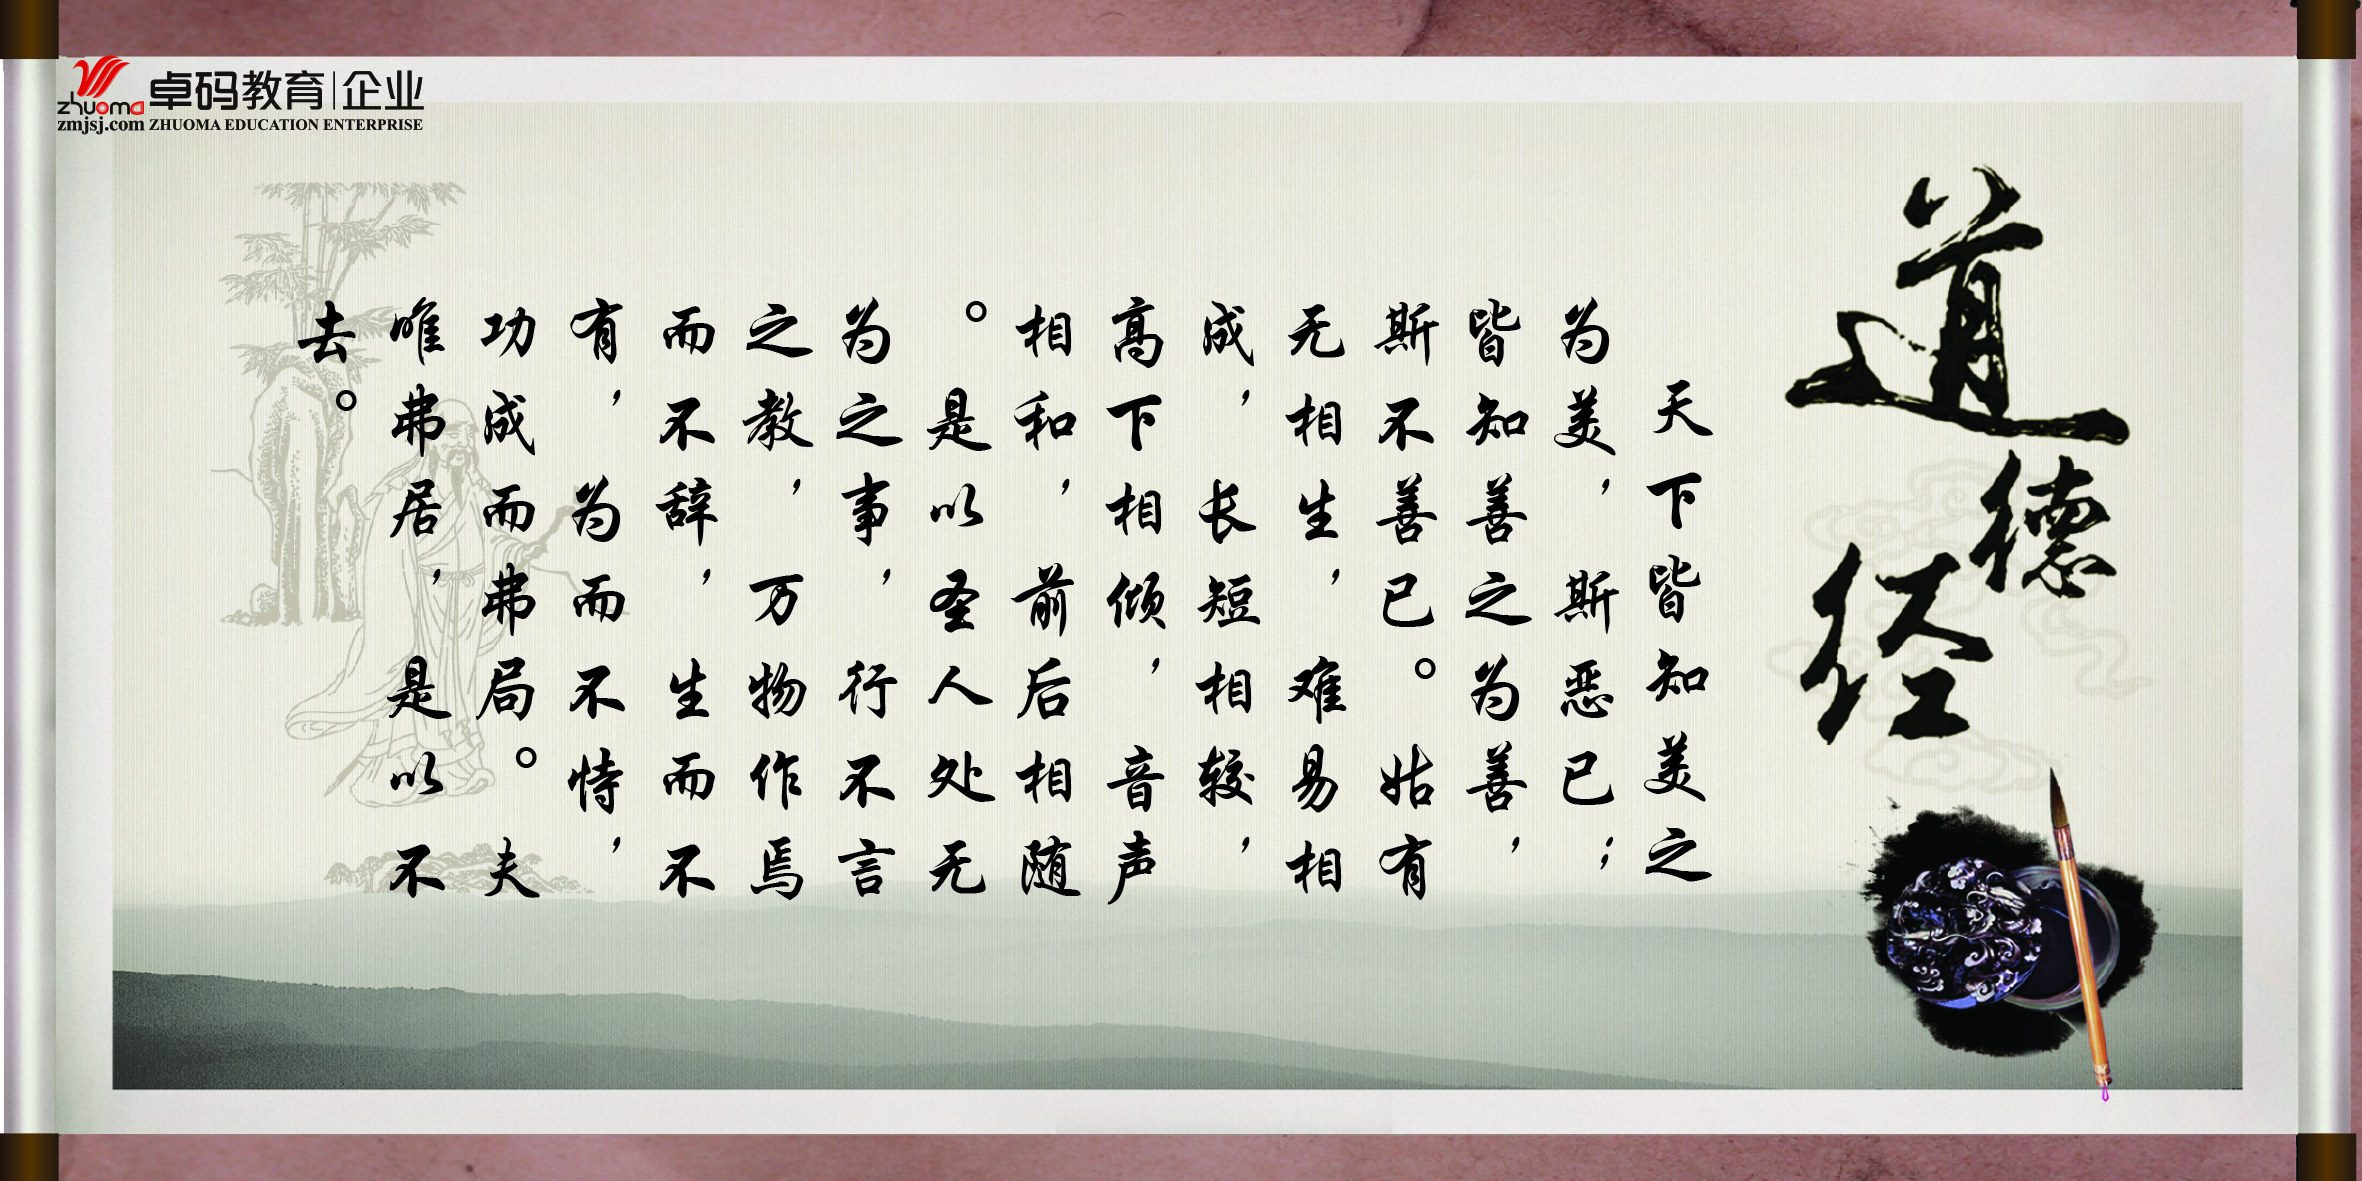 卓码教育|企业
zhuoma
zmjsj.com ZHUOMA EDUCATION ENTERPRISE
道德经
天下皆知美之
为美，斯恶已；
皆知善之为善，
斯不善已。姑有
无相生，难易相
成，长短相较，
高下相倾，音声
相和，前后相随
。是以圣人处无
为之事，行不言
之教，万物作焉
而不辞，生而不
有，为而不恃，
功成而弗局。夫
唯弗居，是以不
去。